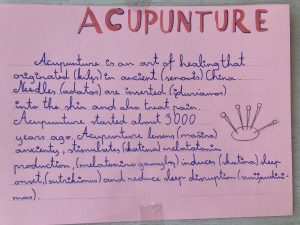 ACUPUNTURE
Acupunture is an art of healing that
originated (kilęs) in ancient (senovės) China.
Needles (adatos) are inserted (įduriamos)
into the skin and also treat pain.
Acupunture started about 3000
years ago. Acupunture lessens (mažina)
anxiety, stimulates (skatina) melatotin
production, (melatonino gamybą) induces (skatina) sleep
onset, (sutrikimus) and reduce sleep disruption